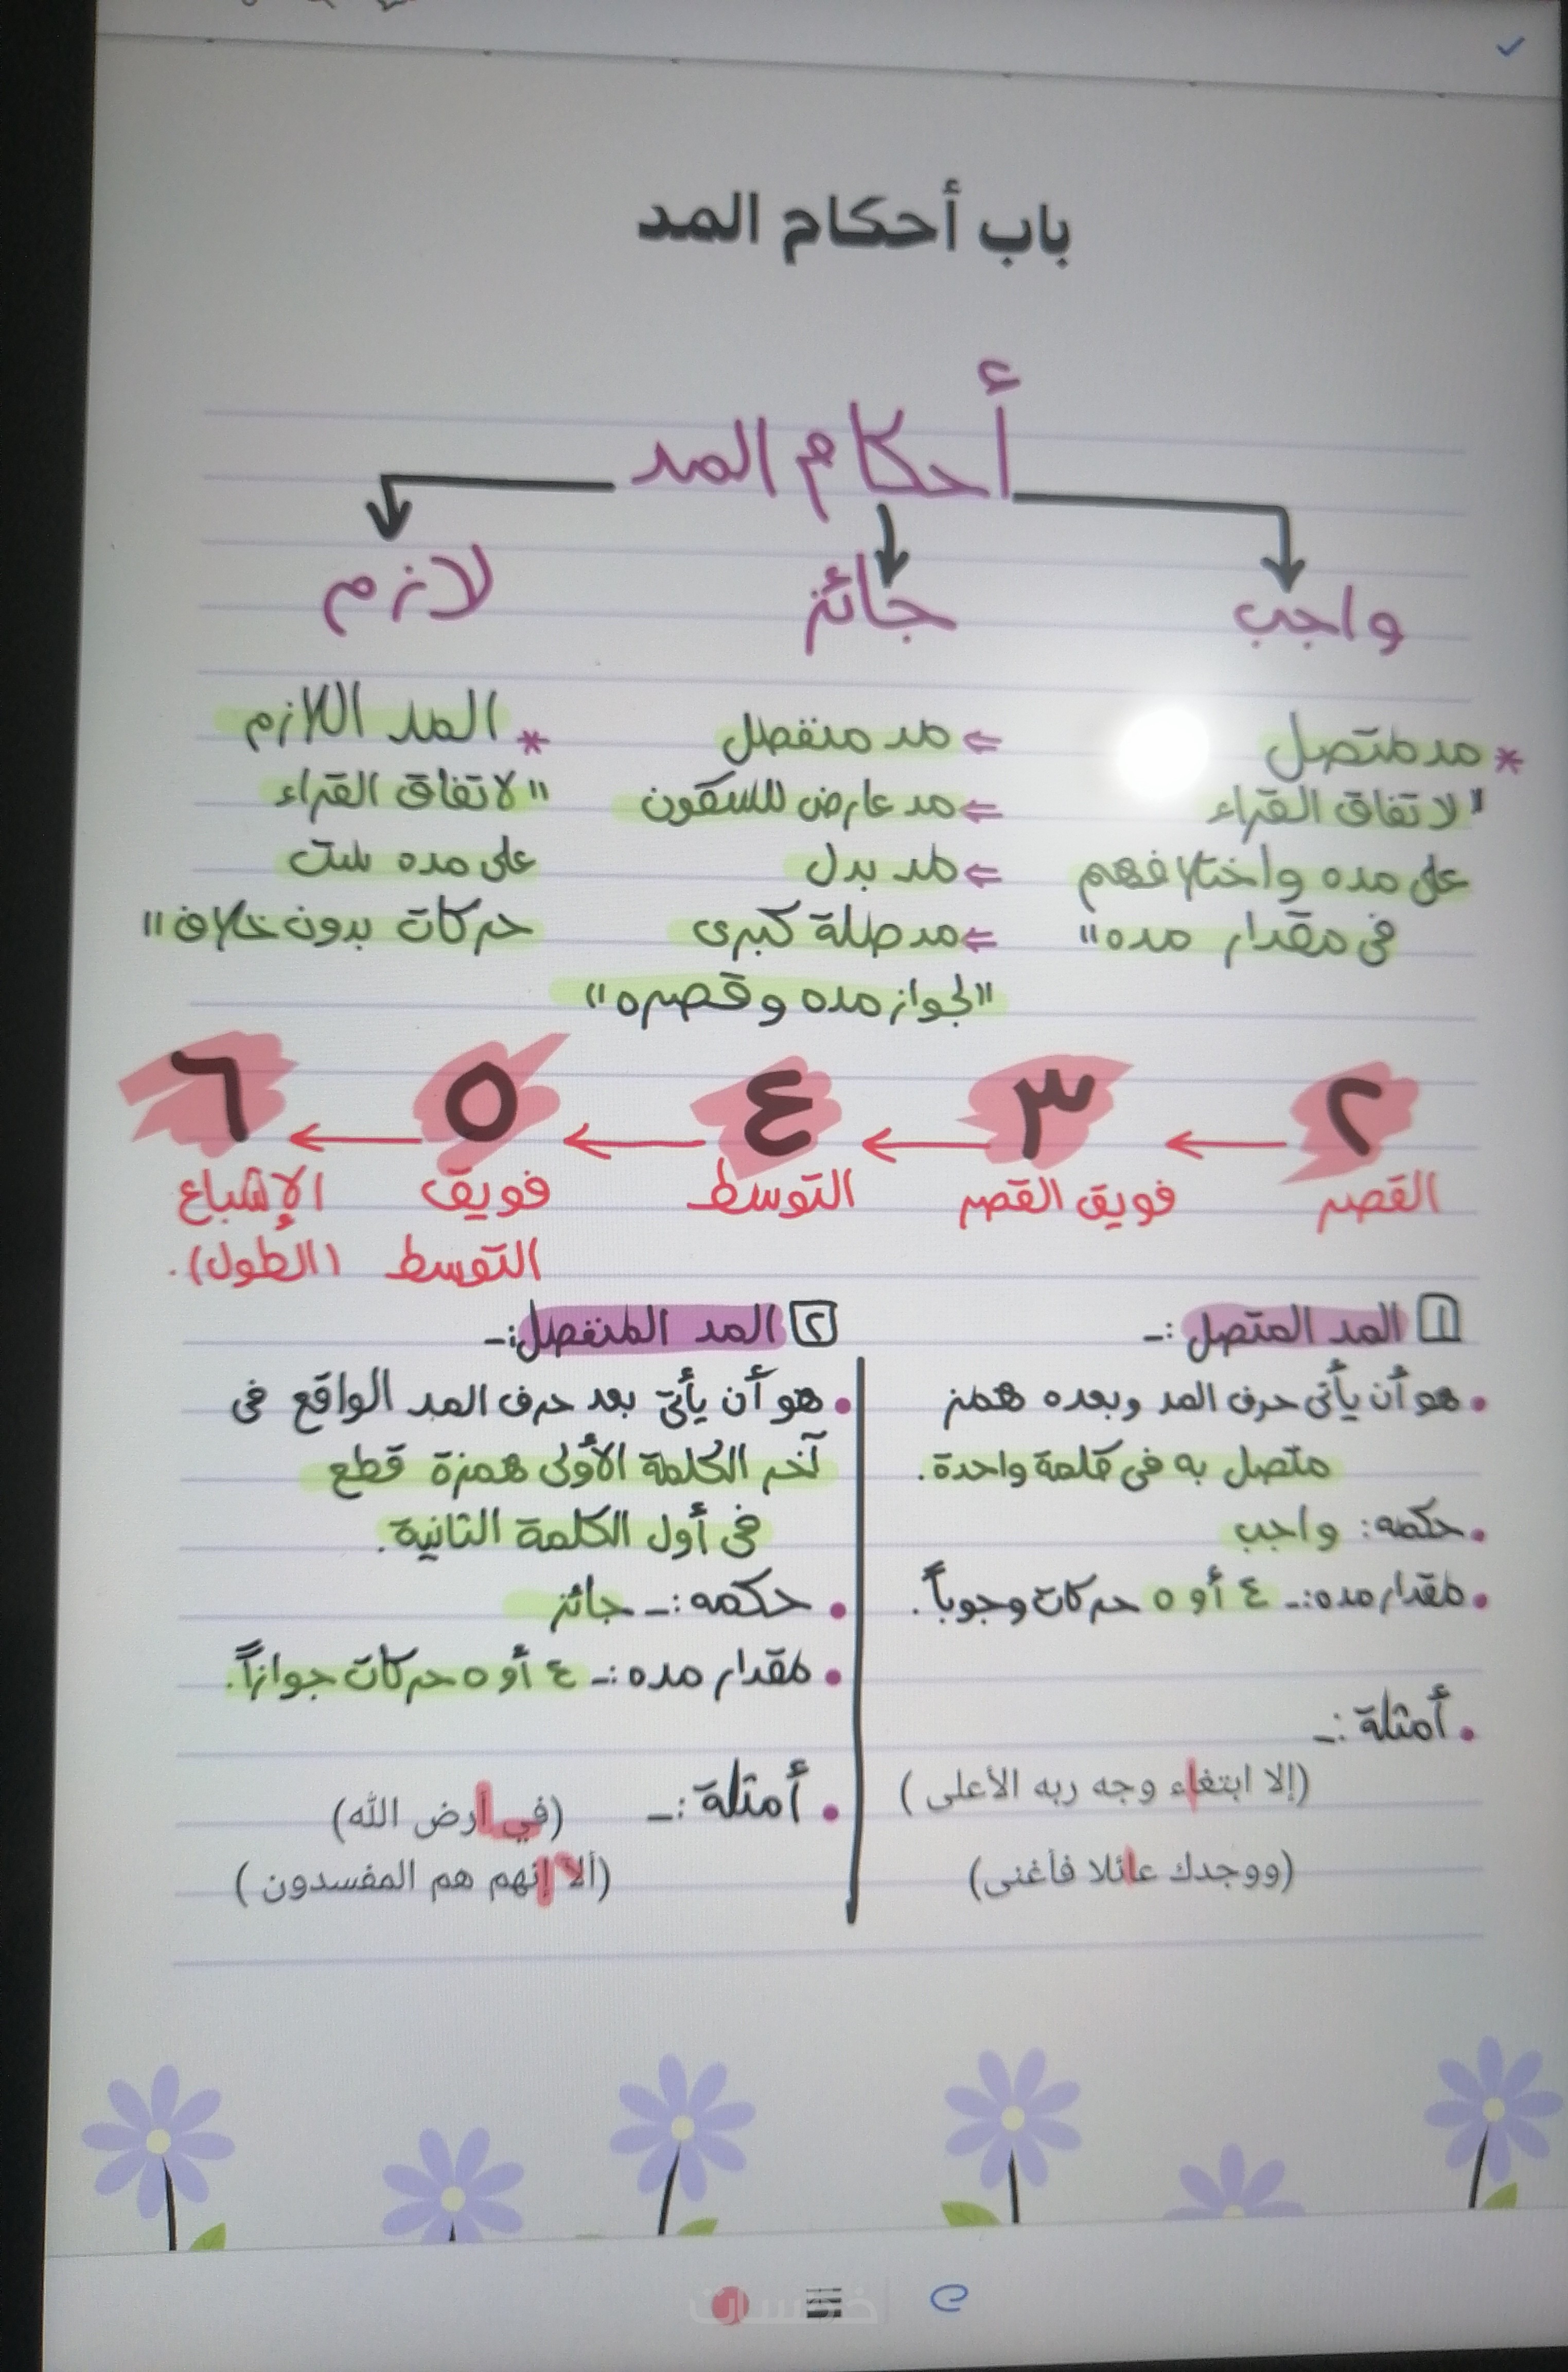 باب أحكام المد
أحكام المد
واجب
جائز
لازم
* مد متصل
"لاتفاق القراء
على مده واختلافهم
فى مقدار مده"
⇐ مد منفصل
⇐ مد عارض للسكون
⇐ مد بدل
⇐ مد صلة كبرى
"لجواز مده وقصره"
* المد اللازم
"لاتفاق القراء
على مده ست
حركات بدون خلاف"
٢ ← ٣ ← ٤ ← ٥ ← ٦
القصر
فويق القصر
التوسط
فويق التوسط
الإشباع (الطول).
١ المد المتصل :-
• هو أن يأتى حرف المد وبعده همز
متصل به فى كلمة واحدة.
• حكمه: واجب
• مقدار مده:- ٤ أو ٥ حركات وجوباً.
• أمثلة :-
(إلا ابتغاء وجه ربه الأعلى )
(ووجدك عائلا فأغنى)
٢ المد المنفصل:-
• هو أن يأتى بعد حرف المد الواقع فى
آخر الكلمة الأولى همزة قطع
فى أول الكلمة الثانية.
• حكمه :- جائز
• مقدار مده :- ٤ أو ٥ حركات جوازاً.
• أمثلة :-
(في أرض الله)
(ألا إنهم هم المفسدون )
خمسات